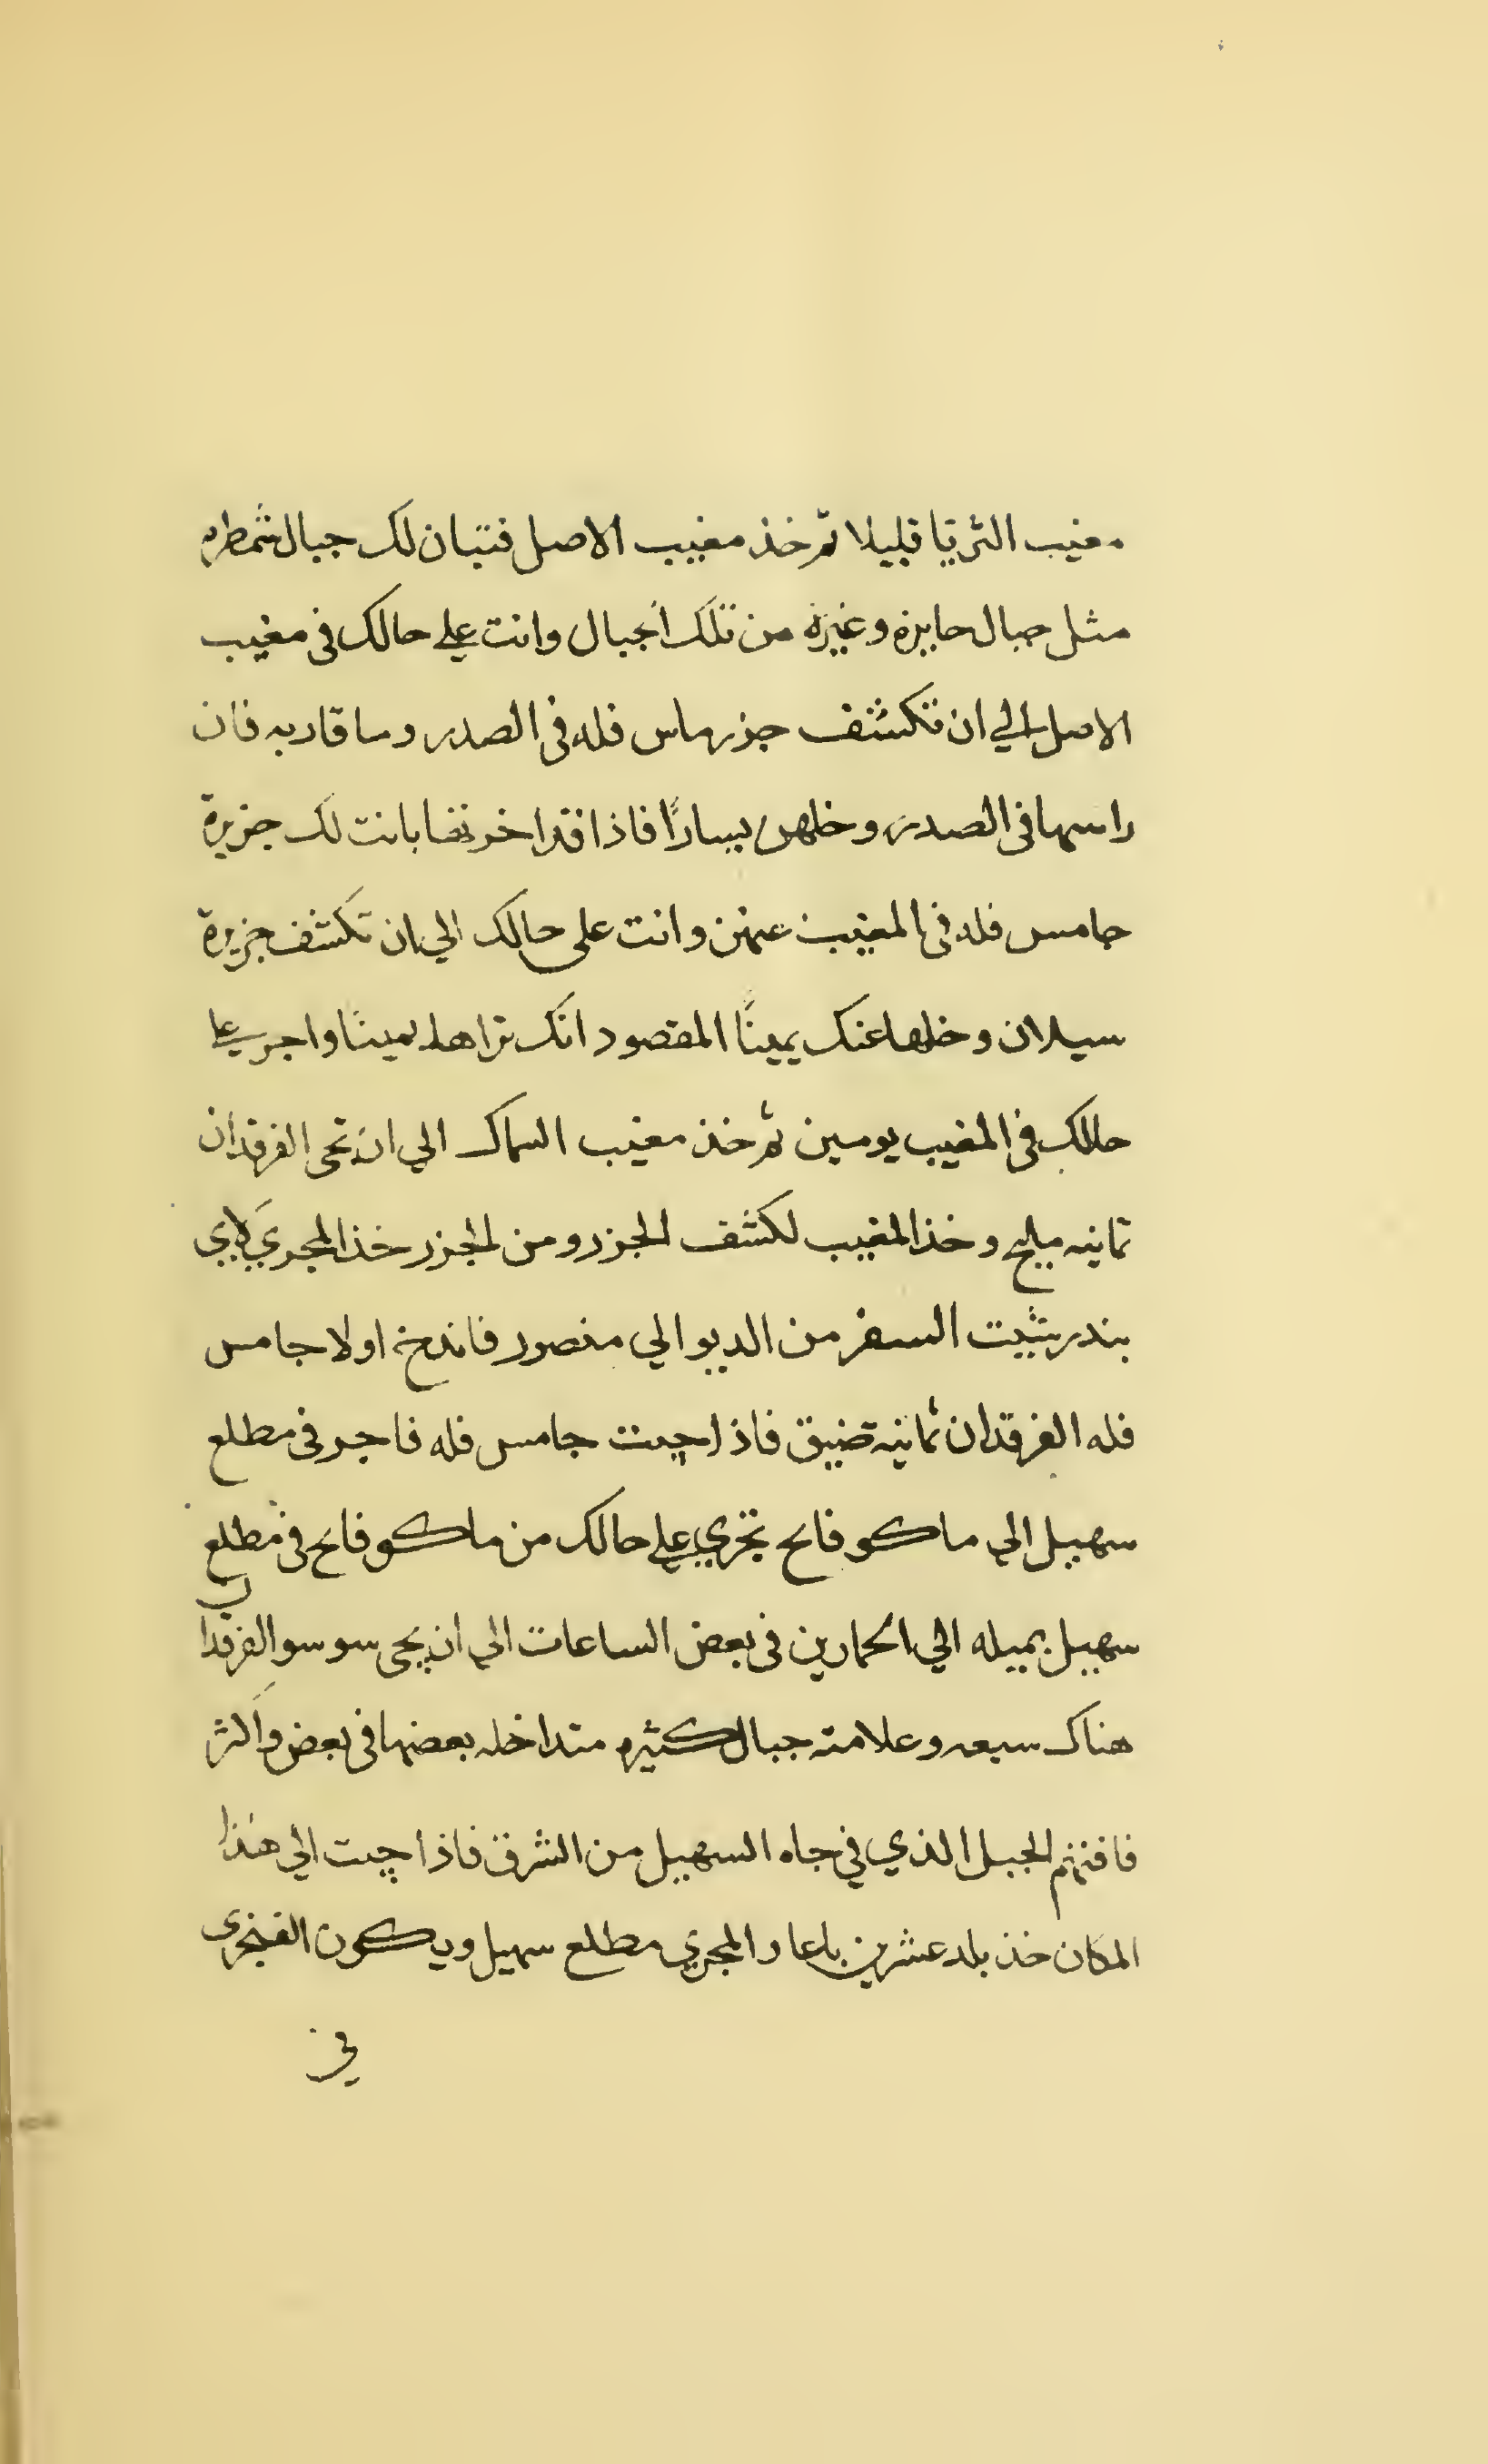 مغيب الثريا قليلا ثم خذ مغيب الاصل فتبان لك جبال شمطره
مثل جبال حايزه وغيره من تلك الجبال وانت علي حالك في مغيب
الاصل الي ان تكشف جزر ماس فله في الصدر وما قاربه فان
راسها في الصدر وخلهن يسارًا فاذا بانت لك جزيرة
جامس فله في المغيب عنهن وانت علي حالك الي ان تكشف جزيرة
سيلان وخلها عنك يمينًا المقصود انك تراها يمينًا واجر علي
حالك في المغيب يومين ثم خذ مغيب السماك الي ان تجي الفرقدان
ثمانيه مليح وخذ المغيب لكشف الجزر ومن الجزر خذ المجري لاي
بندر شيت السفر من الديو الي منصور فاندخ اولا جامس
فله الفرقدان ثمانيه ضيق فاذا جيت جامس فله فاجر في مطلع
سهيل الي ماكوفانج تجري علي حالك من ماكوفانج في مطلع
سهيل بميله الي الحمارين في بعض الساعات الي ان يجي سوسو الفرقدان
هناك سبعه وعلامته جبال كثيره متداخله بعضها في بعض واكثر
الجبل الذي في جاه السهيل من الشرق فاذا جيت الي هذا
المكان خذ بلد عشرين باعا والمجري مطلع سهيل ويكون الفنجري
في